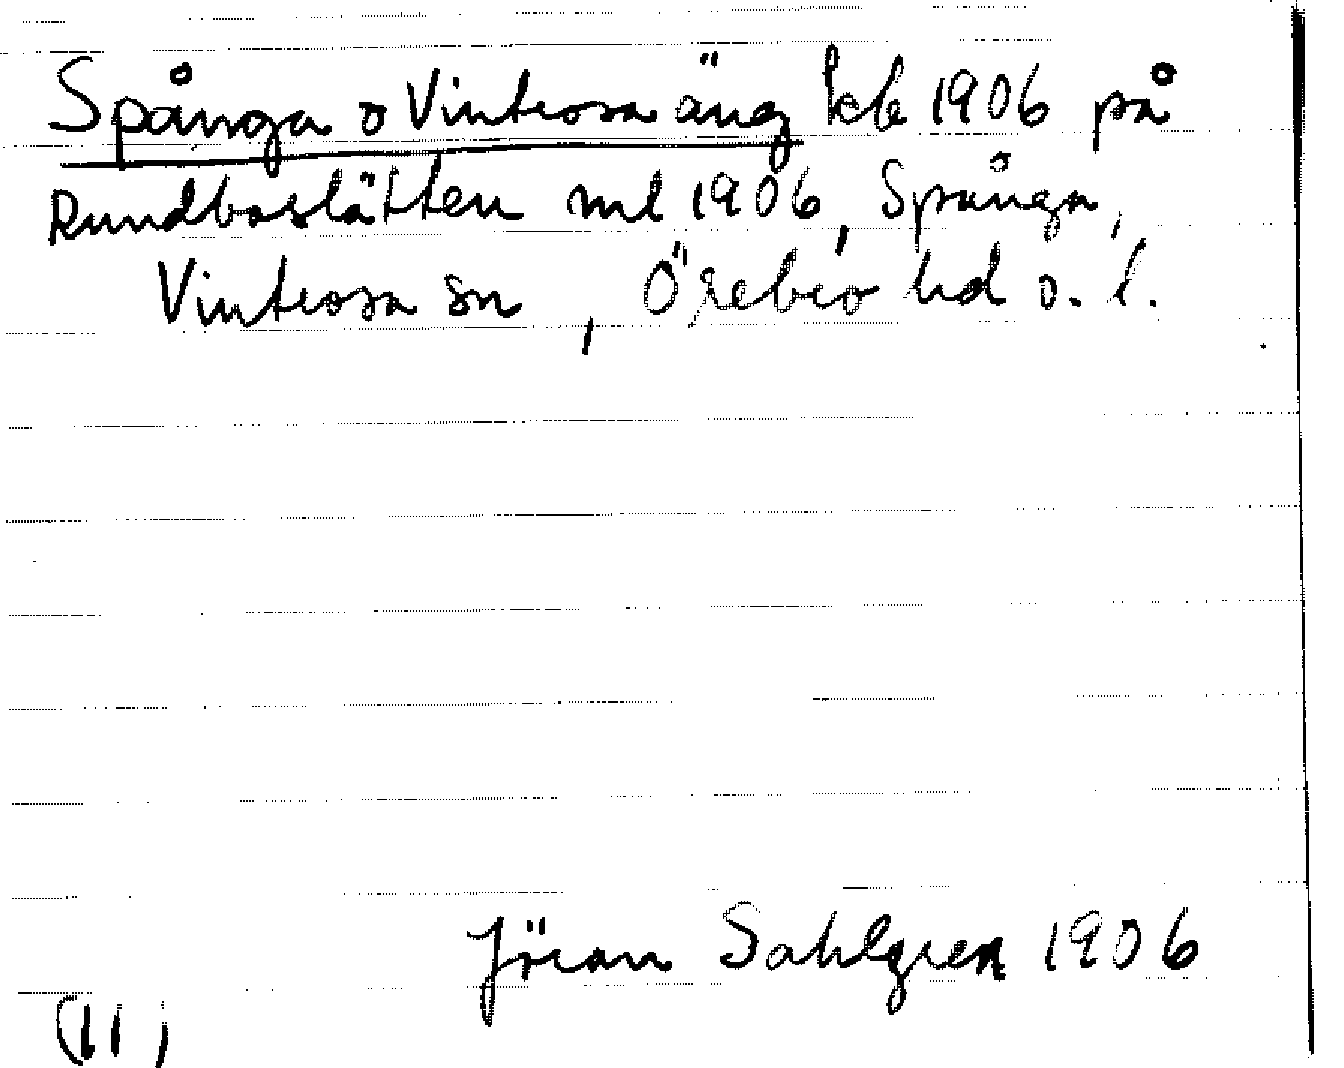 Spånga o Vintrosa äng kb 1906 på
Rundboslätten ml 1906, Spånga,
Vintrosa sn, Örebro hd o. l.
Jöran Sahlgren 1906
(11)